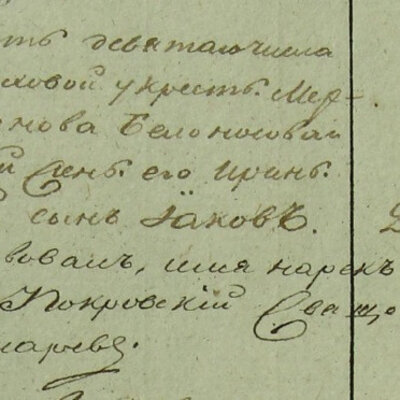 ть девятаго числа
ховой у крест. Мер-
нова Белоносовай
й Сень. его Иринь.
сынъ Іаковъ.
вовалъ, имя нарекъ
Покровскій Свящ